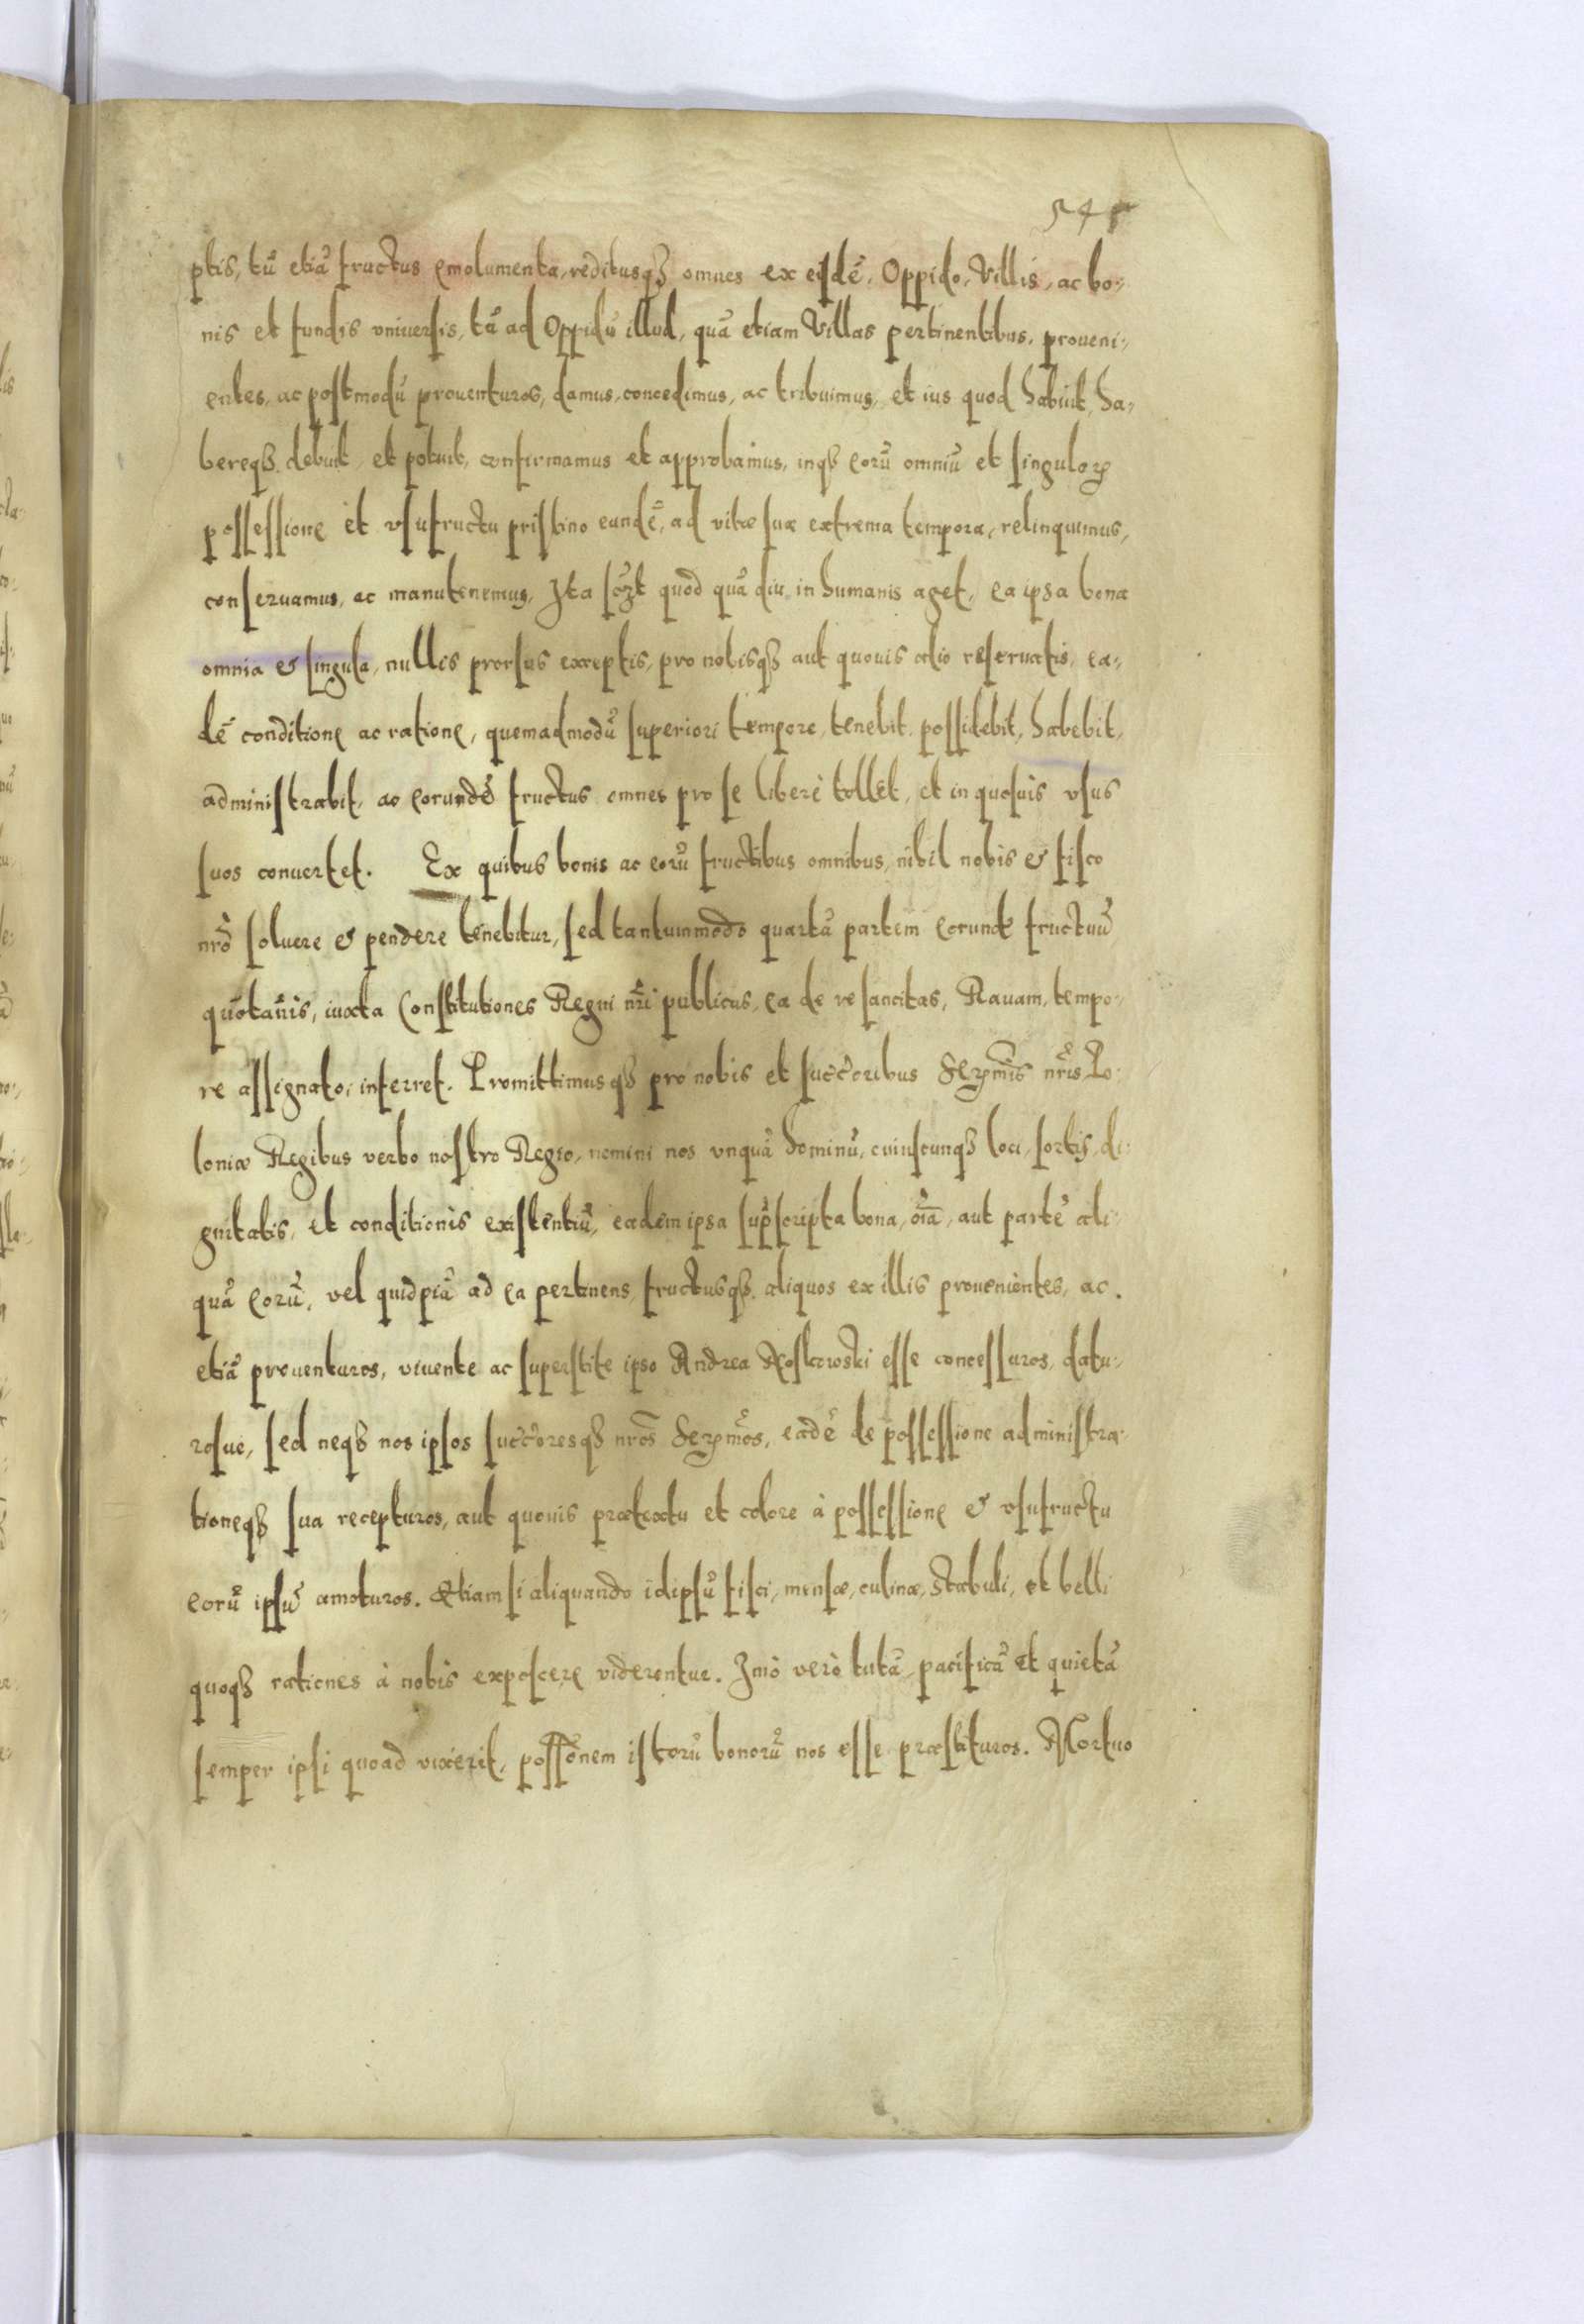 545
ptis, tũ etiã fructus emolumenta, reditusqȝ omnes ex eisdẽ, Oppido, Villis, ac bo-
nis et fundis vniuersis, tũ ad Oppidũ illud, quã etiam Villas pertinentibus, proueni-
entes, ac postmodũ prouenturos, damus, concedimus, ac tribuimus, et ius quod habuit, ha-
bereqȝ debuit, et potuit, confirmamus et approbamus, inqȝ eorũ omniũ et singuloꝝ
possessione et vsufructu pristino eundẽ, ad vitæ suæ extrema tempora, relinquimus,
conseruamus, ac manutenemus, Ita sczt quod quã diu in humanis aget, ea ipsa bona
omnia & singula, nullis prorsus exceptis, pro nobisqȝ aut quouis alio reseruatis, ea-
dẽ conditione ac ratione, quemadmodũ superiori tempore, tenebit, possidebit, habebit,
administrabit, ac eorundẽ fructus omnes pro se liberè tollet, et in quosuis vsus
suos conuertet. Ex quibus bonis ac eorũ fructibus omnibus, nihil nobis & fisco
nr̃o soluere & pendere tenebitur, sed tantummodo quartã partem eorundẽ fructuũ
quotañis, iuxta Constitutiones Regni nr̃i publicas, ea de re sancitas, Rauam, tempo-
re assignato, inferret. Promittimusqȝ pro nobis et succ̃oribus Serꝝmis nr̃is Po-
loniæ Regibus verbo nostro Regio, nemini nos vnquã hominũ, cuiuscunqȝ loci, sortis, di-
gnitatis, et conditionis existentiũ, eadem ipsa sup̃scripta bona, oĩa, aut partẽ ali-
quã eorũ, vel quidpiã ad ea pertinens, fructusqȝ aliquos ex illis prouenientes, ac
etiã prouenturos, viuente ac superstite ipso Andrea Koskowski esse concessuros, datu-
rosue, sed neqȝ nos ipsos succ̃oresqȝ nr̃os Serꝝmos, eadẽ de possessione administra-
tioneqȝ sua recepturos, aut quouis prætextu et colore à possessione & vsufructu
eorũ ipsũ amoturos. Etiam si aliquando idipsũ fisci, mensæ, culinæ, stabuli, et belli
quoqȝ rationes à nobis exposcere viderentur. Imò verò tutã, pacificã et quietã
semper ipsi quoad vixerit, poss̃onem istorũ bonorũ nos esse præstituros. Mortuo